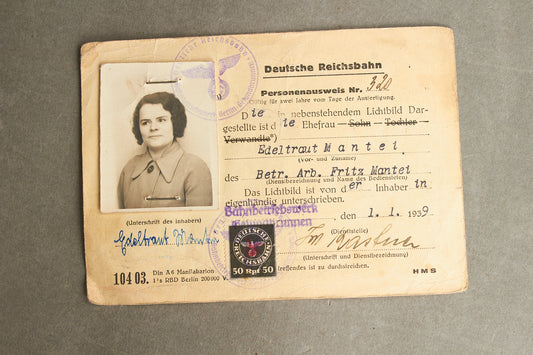 Deutsche Reichsbahn
Personenausweis Nr. 320
Gültig für zwei Jahre vom Tage der Ausfertigung.
Die in nebenstehendem Lichtbild Dar-
gestellte ist die Ehefrau Sohn Tochter
Verwandte*)
Edeltraut Mantei
(Vor- und Zuname)
des Betr. Arb. Fritz Mantei
(Dienstbezeichnung und Name des Bediensteten)
Das Lichtbild ist von der Inhaberin
eigenhändig unterschrieben.
Bahnbetriebswerk
, den 1. 1. 1939
(Dienststelle)
(Unterschrift und Dienstbezeichnung)
treffendes ist zu durchstreichen.
HMS
(Unterschrift des Inhabers)
Edeltraut Mantei
104 03. Din A6 Manilakarton
RBD Berlin
DEUTSCHE
REICHSBAHN
50 Rpf 50